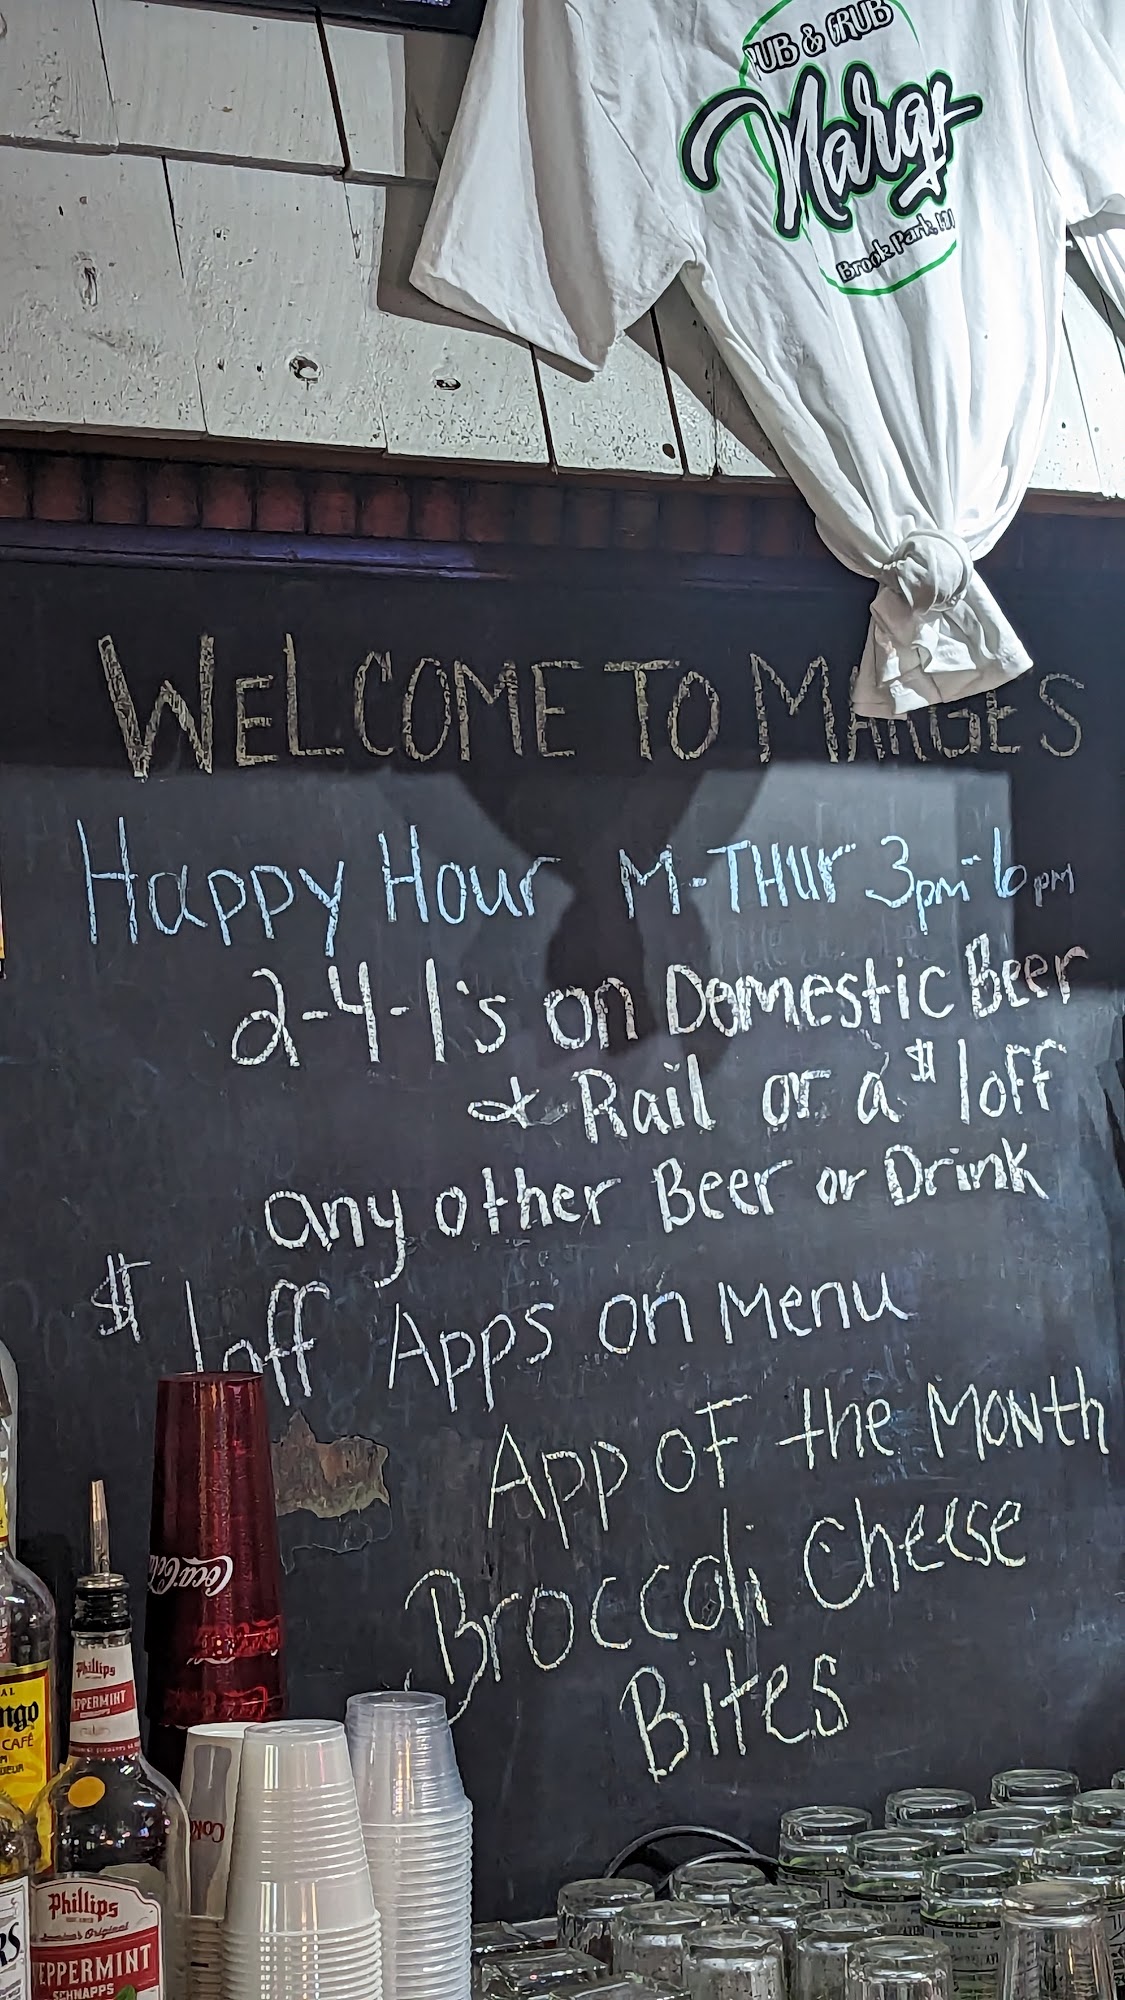 PUB & GRUB
Margs
Brook Park, MN
WELCOME TO MARGES
Happy Hour M-THUr 3pm-6pm
2-4-1's on Domestic Beer
& Rail or a $1 off
any other Beer or Drink
$1 off Apps on Menu
App of the Month
Broccoli Cheese
Bites
Coca-Cola
Coke
Phillips
PEPPERMINT
SCHNAPPS
Phillips
Original
PEPPERMINT
SCHNAPPS
CAFÉ